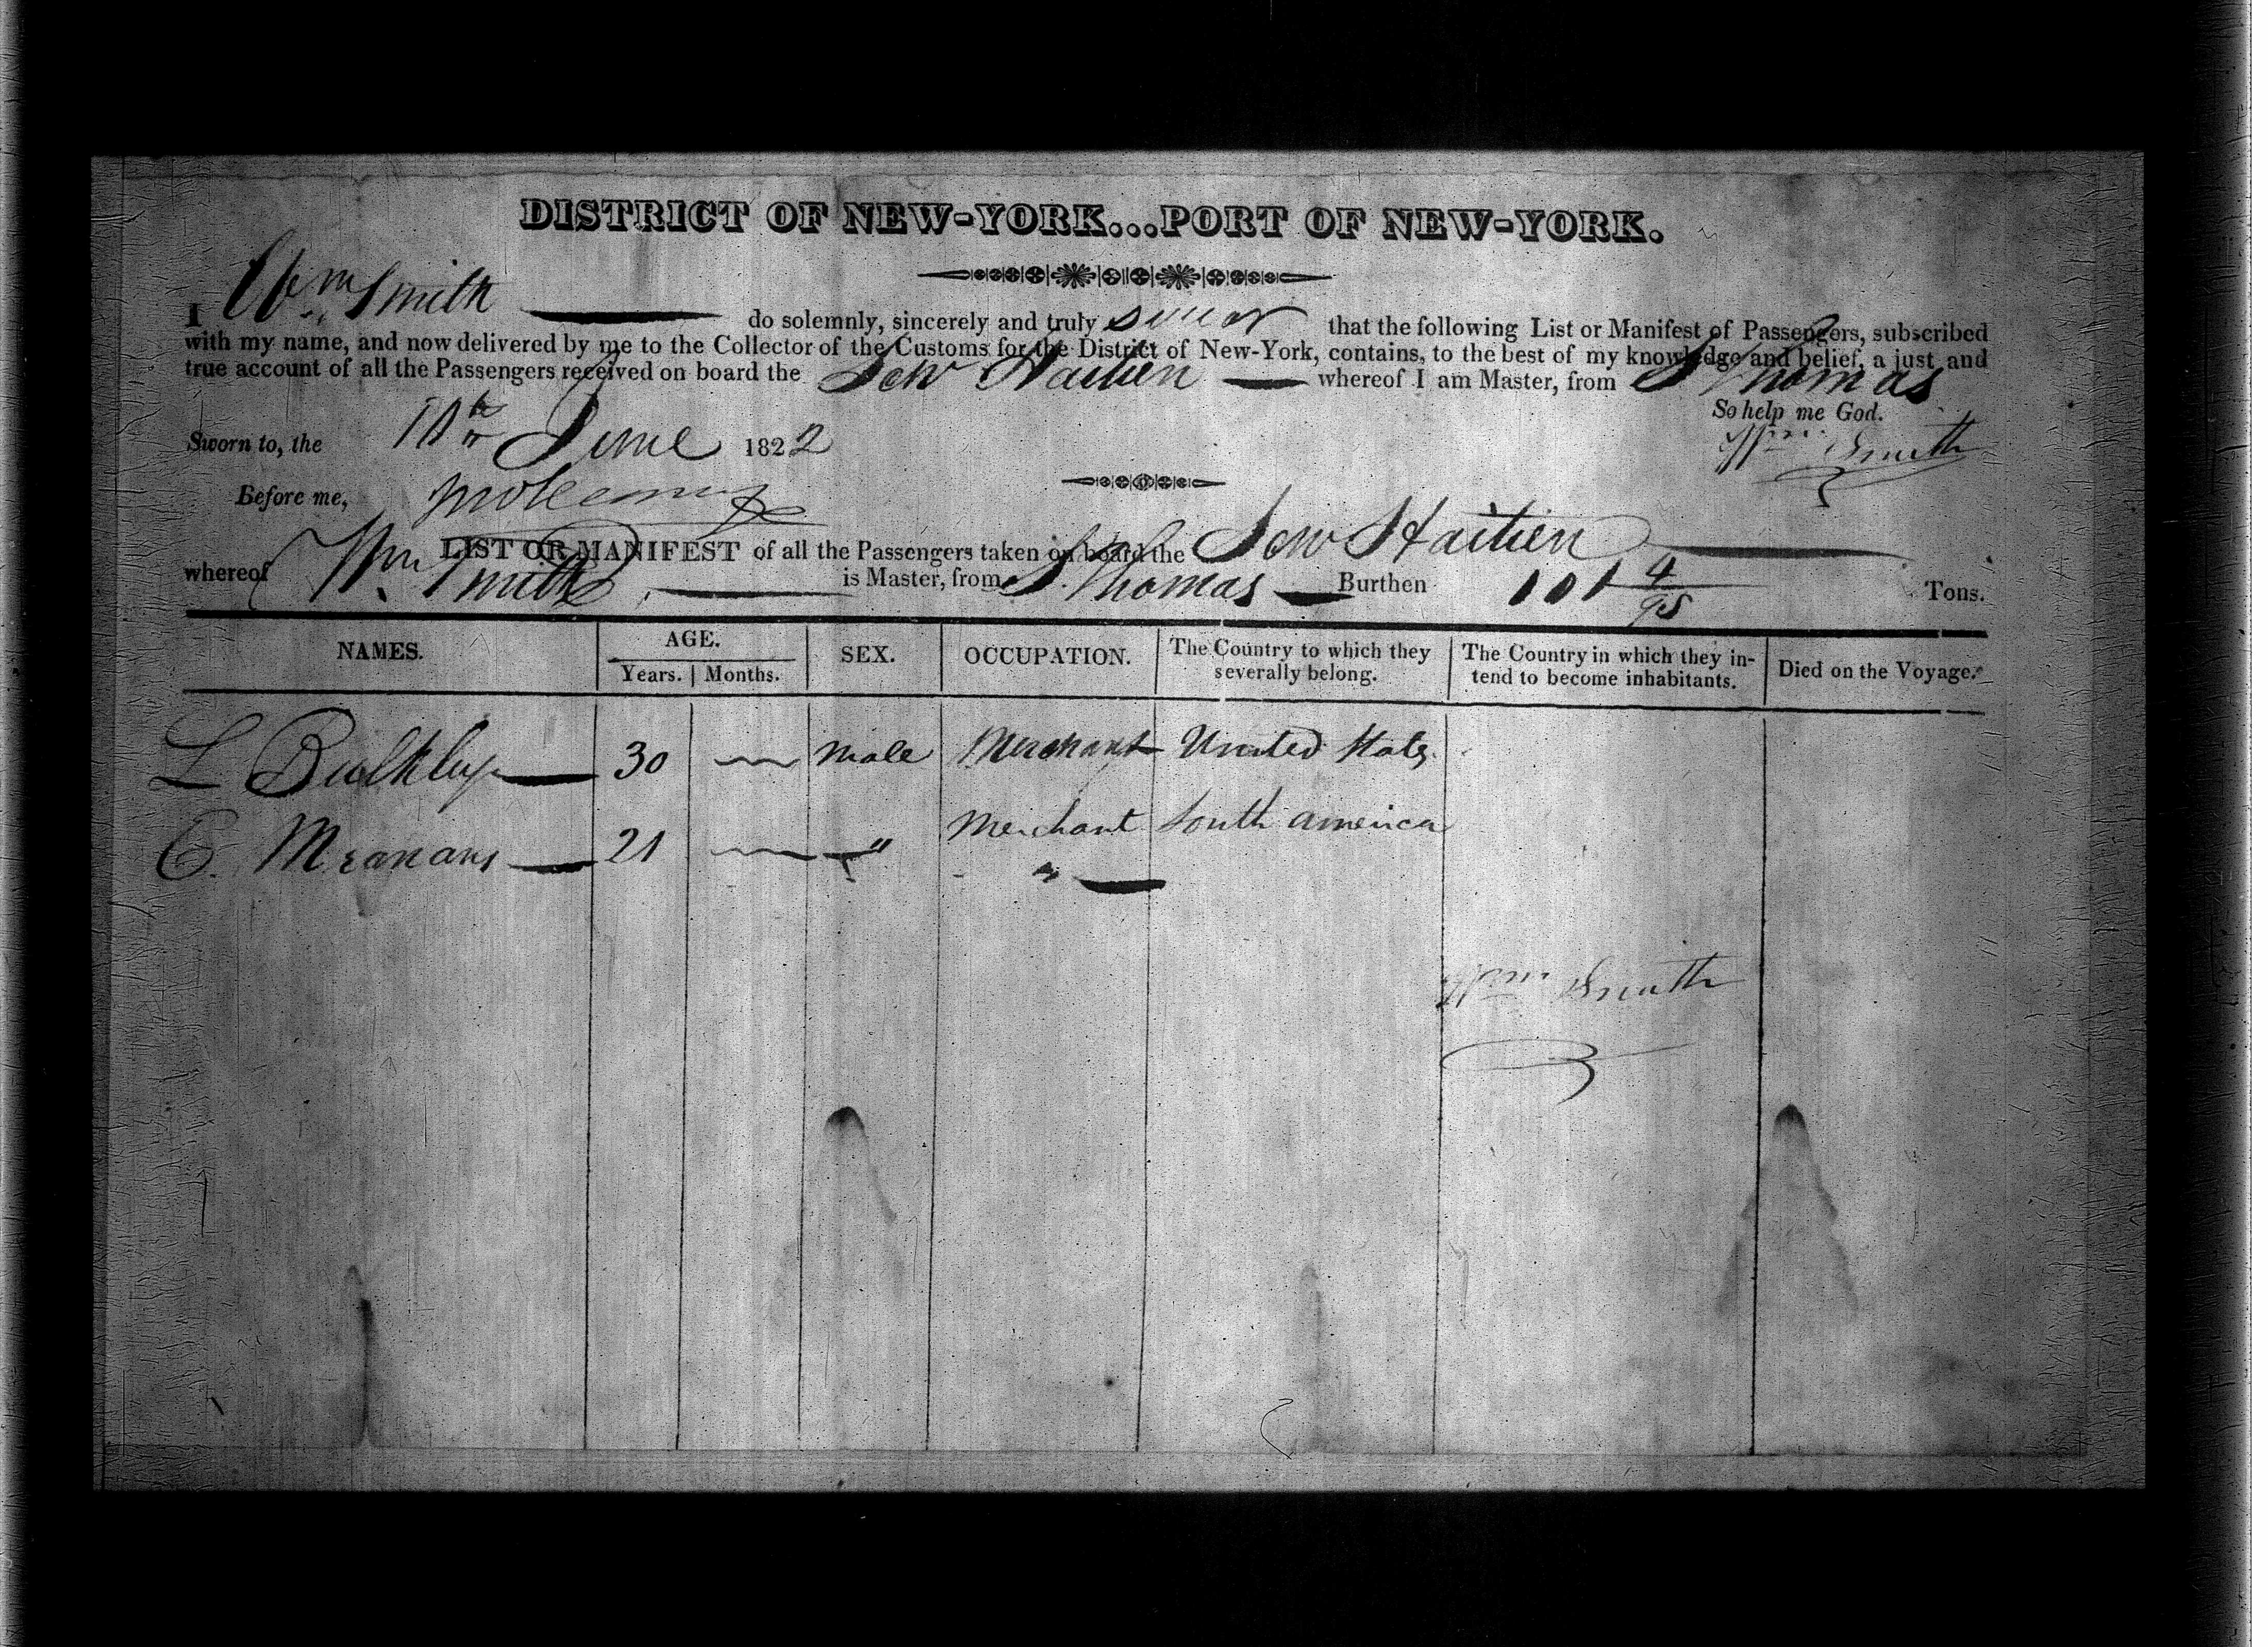 DISTRICT OF NEW-YORK...PORT OF NEW-YORK.
I Wm Smith do solemnly, sincerely and truly swear that the following List or Manifest of Passengers, subscribed
with my name, and now delivered by me to the Collector of the Customs for the District of New-York, contains, to the best of my knowledge and belief, a just and
true account of all the Passengers received on board the Schr Haitien whereof I am Master, from St Thomas
So help me God.
Sworn to, the 10th June 1822
Wm Smith
Before me,
LIST OR MANIFEST of all the Passengers taken on board the Schr Haitien
whereof Wm Smith is Master, from St Thomas Burthen 101 4/95 Tons.
NAMES. AGE. SEX. OCCUPATION. The Country to which they severally belong. The Country in which they in-tend to become inhabitants. Died on the Voyage.
Years. Months.
L Bulkley 30 male Merchant United States
E. 21 " Merchant South america
"
Wm Smith